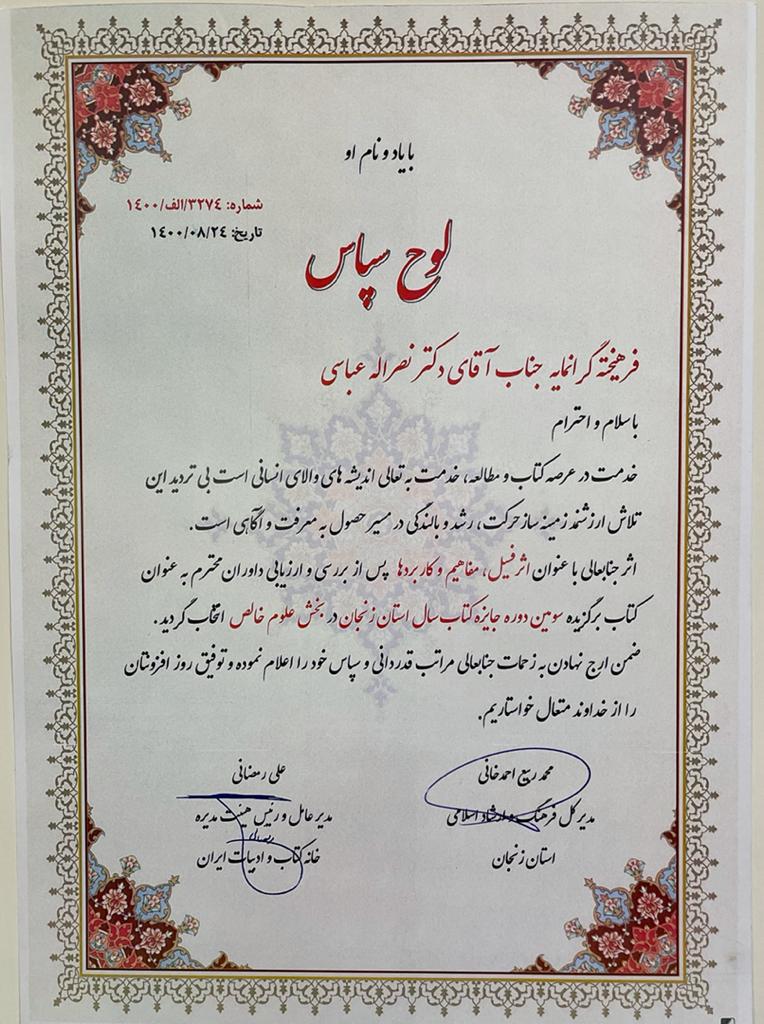 با یاد و نام او
شماره: ۳۲۷۴/الف/۱۴۰۰
تاریخ: ۱۴۰۰/۰۸/۲۴
لوح سپاس
فرهیختهٔ گرانمایه جناب آقای دکتر نصراله عباسی
با سلام و احترام
خدمت در عرصه کتاب و مطالعه، خدمت به تعالی اندیشه های والای انسانی است بی تردید این
تلاش ارزشمند زمینه ساز حرکت، رشد و بالندگی در مسیر حصول به معرفت و آگاهی است.
اثر جنابعالی با عنوان اثر فسیل، مفاهیم و کاربردها پس از بررسی و ارزیابی داوران محترم به عنوان
کتاب برگزیده سومین دوره جایزه کتاب سال استان زنجان در بخش علوم خالص انتخاب گردید.
ضمن ارج نهادن به زحمات جنابعالی مراتب قدردانی و سپاس خود را اعلام نموده و توفیق روز افزونتان
را از خداوند متعال خواستاریم.
محمد ربیع احمدخانی
مدیر کل فرهنگ و ارشاد اسلامی
استان زنجان
علی رمضانی
مدیر عامل و رئیس هیئت مدیره
خانه کتاب و ادبیات ایران